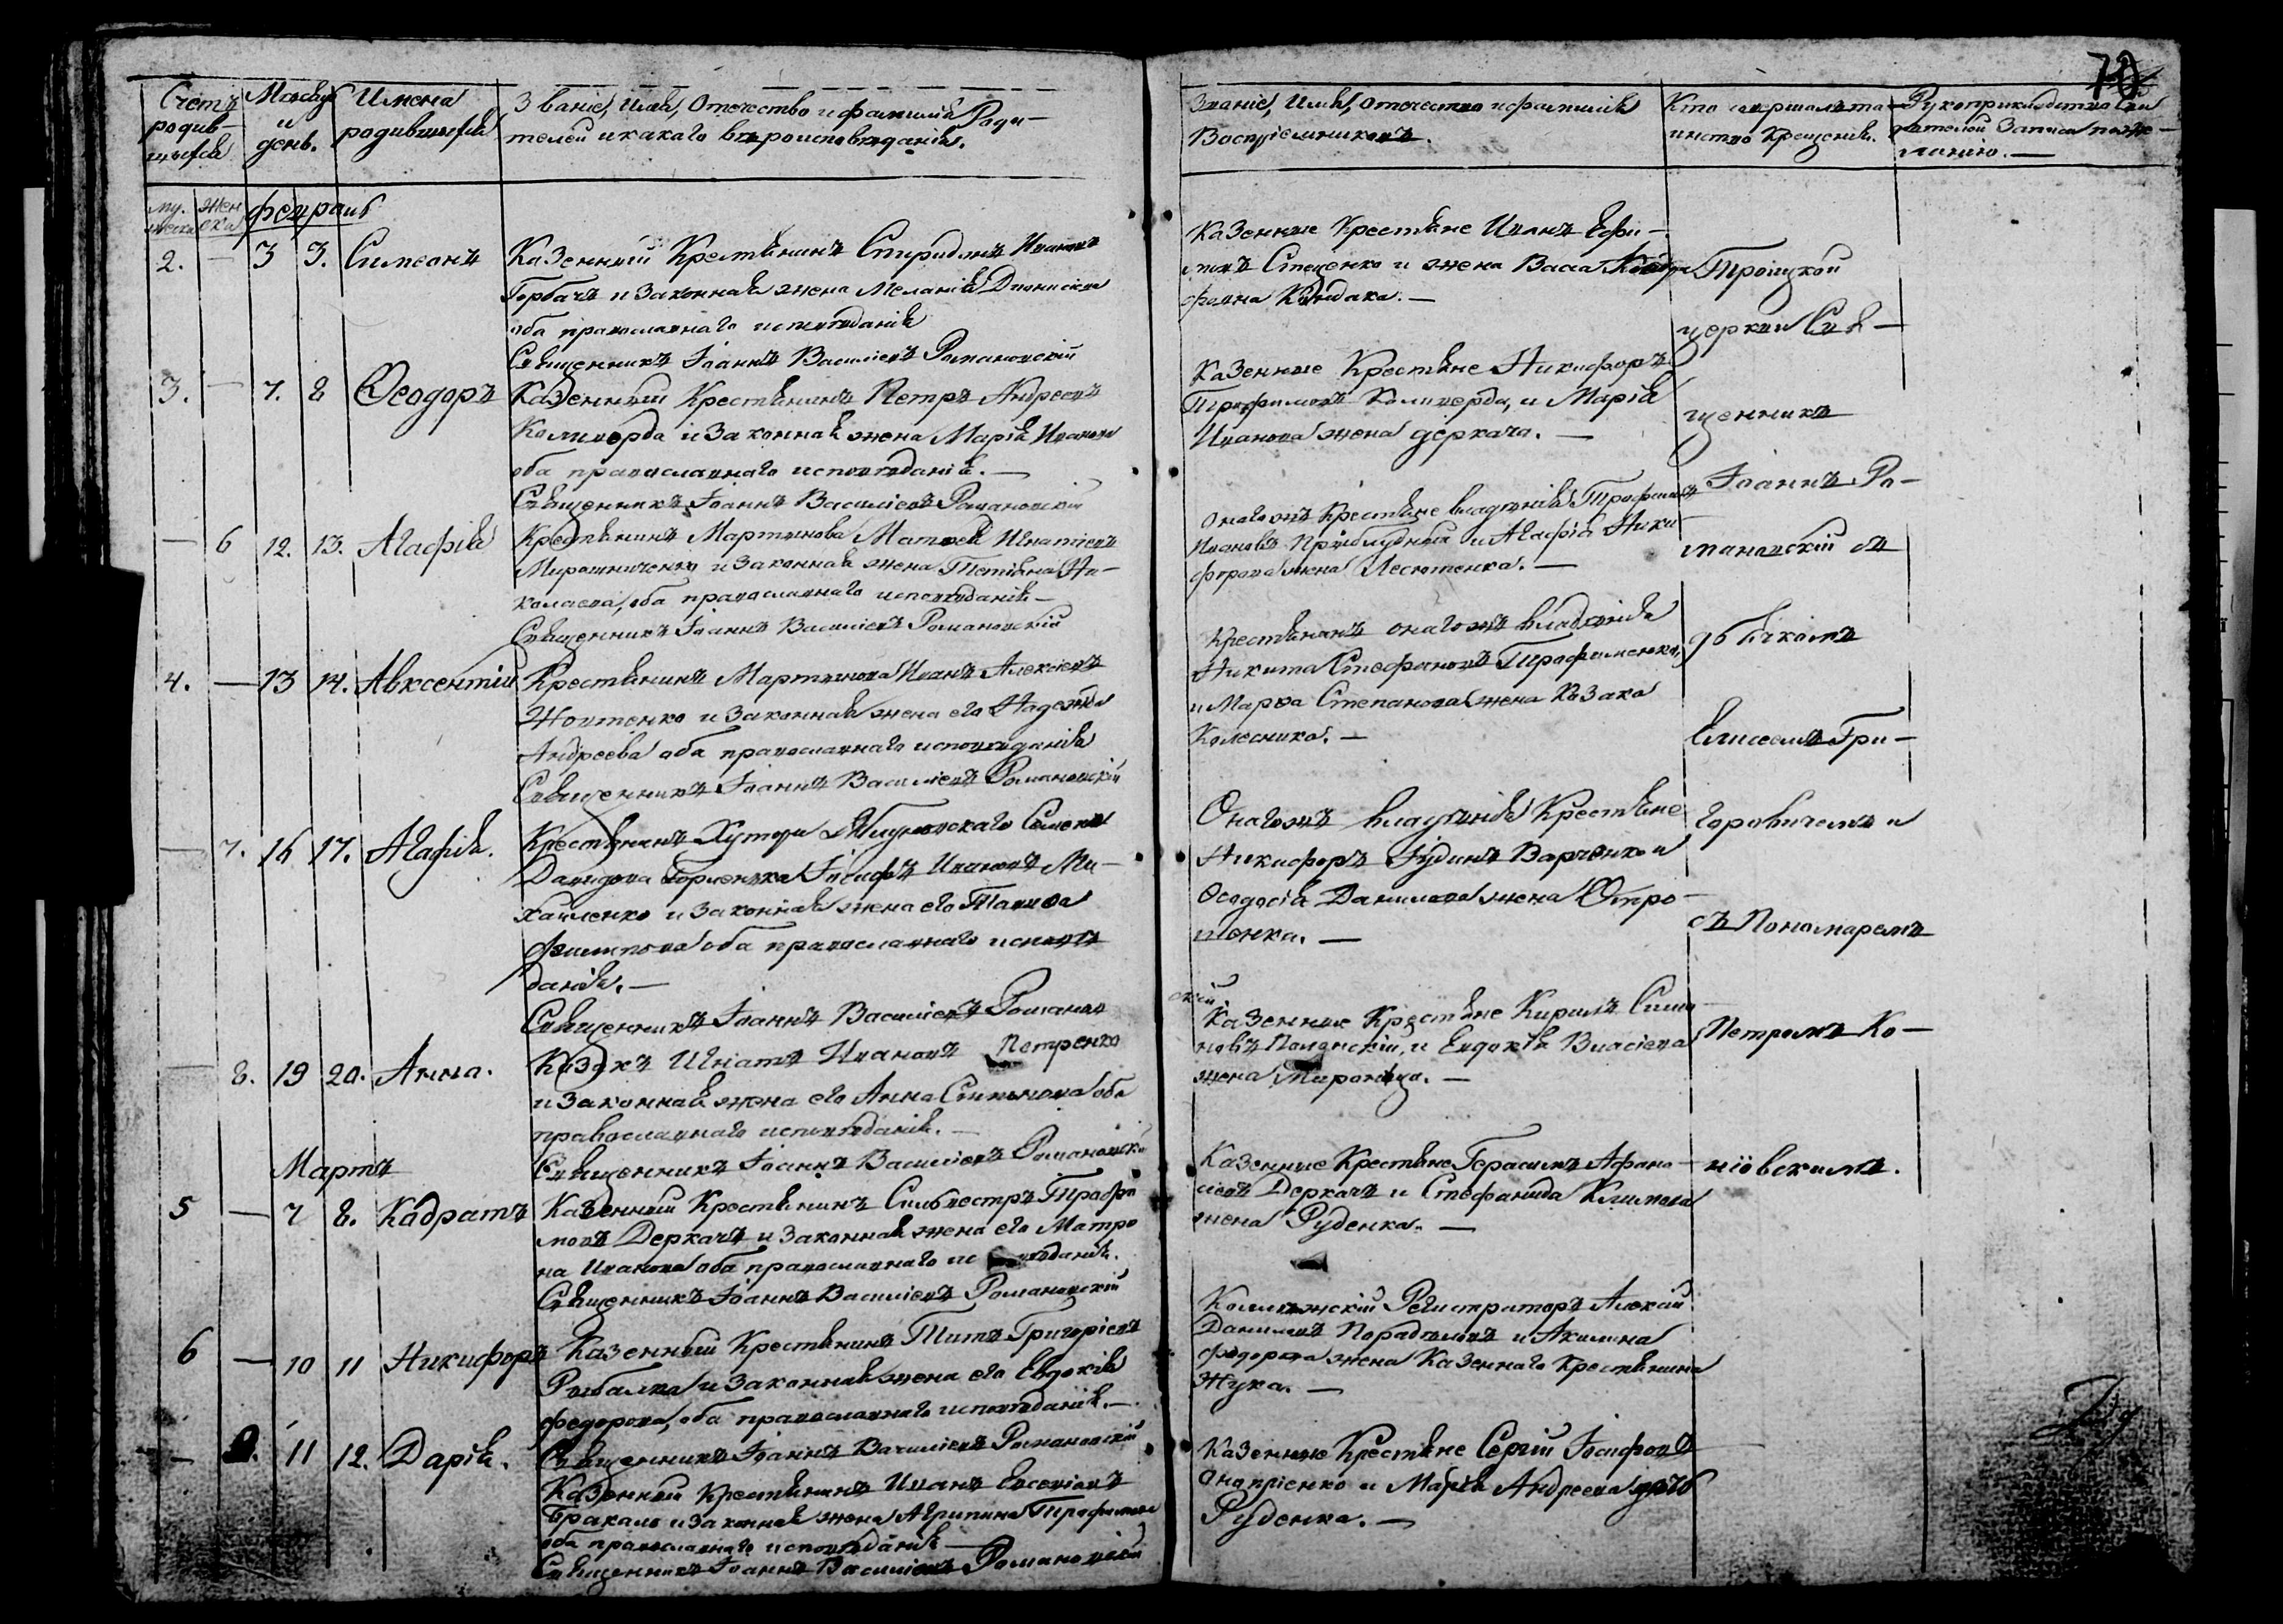 70
Счетъ родив-шыхся
Мѣсяцъ и день.
Имена родившыхся
Званіе, Имя, Отечество и фамилія Роди-
телей и какаго вѣроисповѣданія.
Званіе, Имя, Отечество и фамилія
Воспріемниковъ.
Кто совершалъ та-
инство Крещенія.
Рукоприкладство сви
дѣтелей Записи по же-
ланію.—
му. жен
ска
февраль
2. — 3 3. Симеонъ
Казенный Крестьянинъ Спиридонъ Ивановъ
Горбачъ и Законная жена Меланія Дионисіева
оба православнаго исповѣданія
Священникъ Іоаннъ Василіевъ Романовскій
Казенные Крестьяне Иванъ Ефи-
мовъ Стеценко и жена Васа
3. — 7. 8 Ѳеодоръ
Казенный Крестьянинъ Петръ Андреевъ
Коливерда и Законная жена Марія Иванова
оба православнаго исповѣданія.—
Священникъ Іоаннъ Василіевъ Романовскій
Казенные Крестьяне Никифоръ
Трофимовъ Коливерда, и Марія
Иванова жена деркача.—
— 6 12. 13. Агафія
Крестьянинъ Мартынова Матѳей Игнатіевъ
Мирошниченко и Законная жена Тетіяна Ни-
колаева, оба православнаго исповѣданія—
Священникъ Іоаннъ Василіевъ Романовскій
Онагожъ Крестьяне владѣнія Трофимъ
Ивановъ Приблудный и Агафія Ники
форова жена Лесютенка.—
4. — 13 14. Авксентій
Крестьянинъ Мартынова Иванъ Алексіевъ
Жовтенко и Законная жена его Надежда
Андреева оба православнаго исповѣданія
Священникъ Іоаннъ Василіевъ Романовскій
Крестьянинъ онагожъ владѣнія
Никита Стефановъ Трофименко,
и Марѳа Степанова жена Козака
Колесника.—
— 7. 16 17. Агафія.
Крестьянинъ Хутора
Давидова Іосифъ Ивановъ Ми-
хайленко и Законная жена его
Филипова оба православнаго исповѣ
данія.—
Священникъ Іоаннъ Василіевъ Романов
скій
Онагожъ владѣнія Крестьяне
Никифоръ Іудинъ Варченко и
Ѳеодосія Данилова жена Остро-
— 8. 19 20. Анна.
Козакъ Игнатъ Ивановъ Петренко
и Законная жена его Анна оба
православнаго исповѣданія.—
Священникъ Іоаннъ Василіевъ Романовскій
Казенные Крестьяне Кирилъ Симо
новъ и Евдокія Власіева
жена
Мартъ
5 — 7 8. Кадратъ
Казенный Крестьянинъ Сильвестръ Трофи
мовъ Деркачъ и Законная жена его Матро
на Иванова оба православнаго исповѣданія.
Священникъ Іоаннъ Василіевъ Романовскій
Казенные Крестьяне Герасимъ Афана-
сіевъ Деркачъ и Стефанида Климова
жена Руденка.—
6 — 10 11 Никифоръ
Казенный Крестьянинъ Титъ Григоріевъ
Рыбалка и Законная жена его Евдокія
Федорова, оба православнаго исповѣданія.—
Священникъ Іоаннъ Василіевъ Романовскій
Коллежскій Регистраторъ Алексій
Даниловъ и Акилина
Федорова жена Казеннаго Крестьянина
Жука.—
— 9. 11 12. Дарія.
Казенный Крестьянинъ Иванъ Евсевіевъ
и Законная жена Агрипина Трофимова
оба православнаго исповѣданія—
Священникъ Іоаннъ Василіевъ Романовскій
Казенные Крестьяне Сергій Іосифовъ
Онопріенко и Марія Андреева дочь
Руденка.—
Троицкой
церкви Свя-
щенникъ
Іоаннъ Ро-
мановскій съ
дьячкомъ
Елисеемъ Гри-
горовичемъ и
съ Пономаремъ
Петромъ Ко-
ніовскимъ.